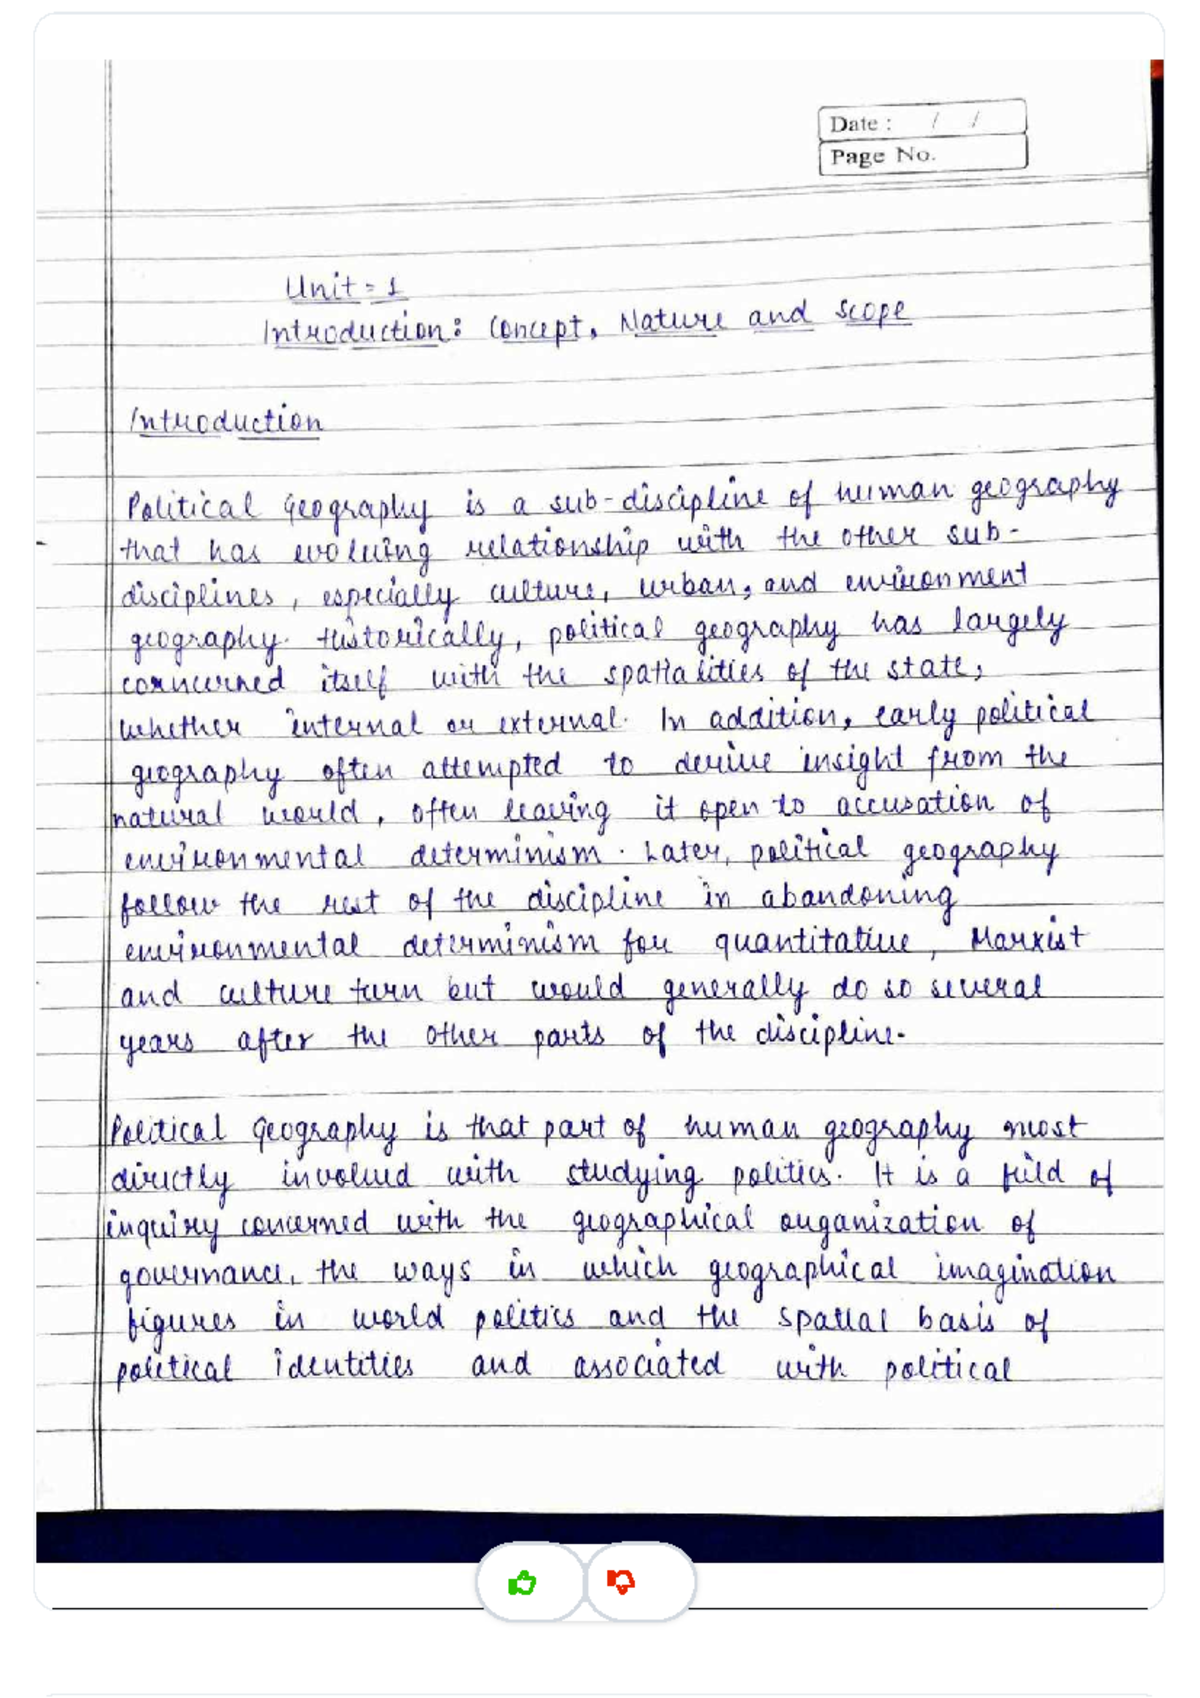 Date : / /
Page No.
Unit = 1
Introduction: Concept, Nature and Scope
Introduction
Political Geography is a sub-discipline of human geography
that has evolving relationship with the other sub-
disciplines, especially culture, urban, and environment
geography. Historically, political geography has largely
corncerned itself with the spatialities of the state,
whether internal or external. In addition, early political
geography often attempted to derive insight from the
natural world, often leaving it open to accusation of
environmental determinism. Later, political geography
follow the rest of the discipline in abandoning
environmental determinism for quantitative, Marxist
and culture turn but would generally do so several
years after the other parts of the discipline.
Political Geography is that part of human geography most
directly involved with studying politics. It is a field of
inquiry concerned with the geographical organization of
governance, the ways in which geographical imagination
figures in world politics and the spatial basis of
political identities and associated with political